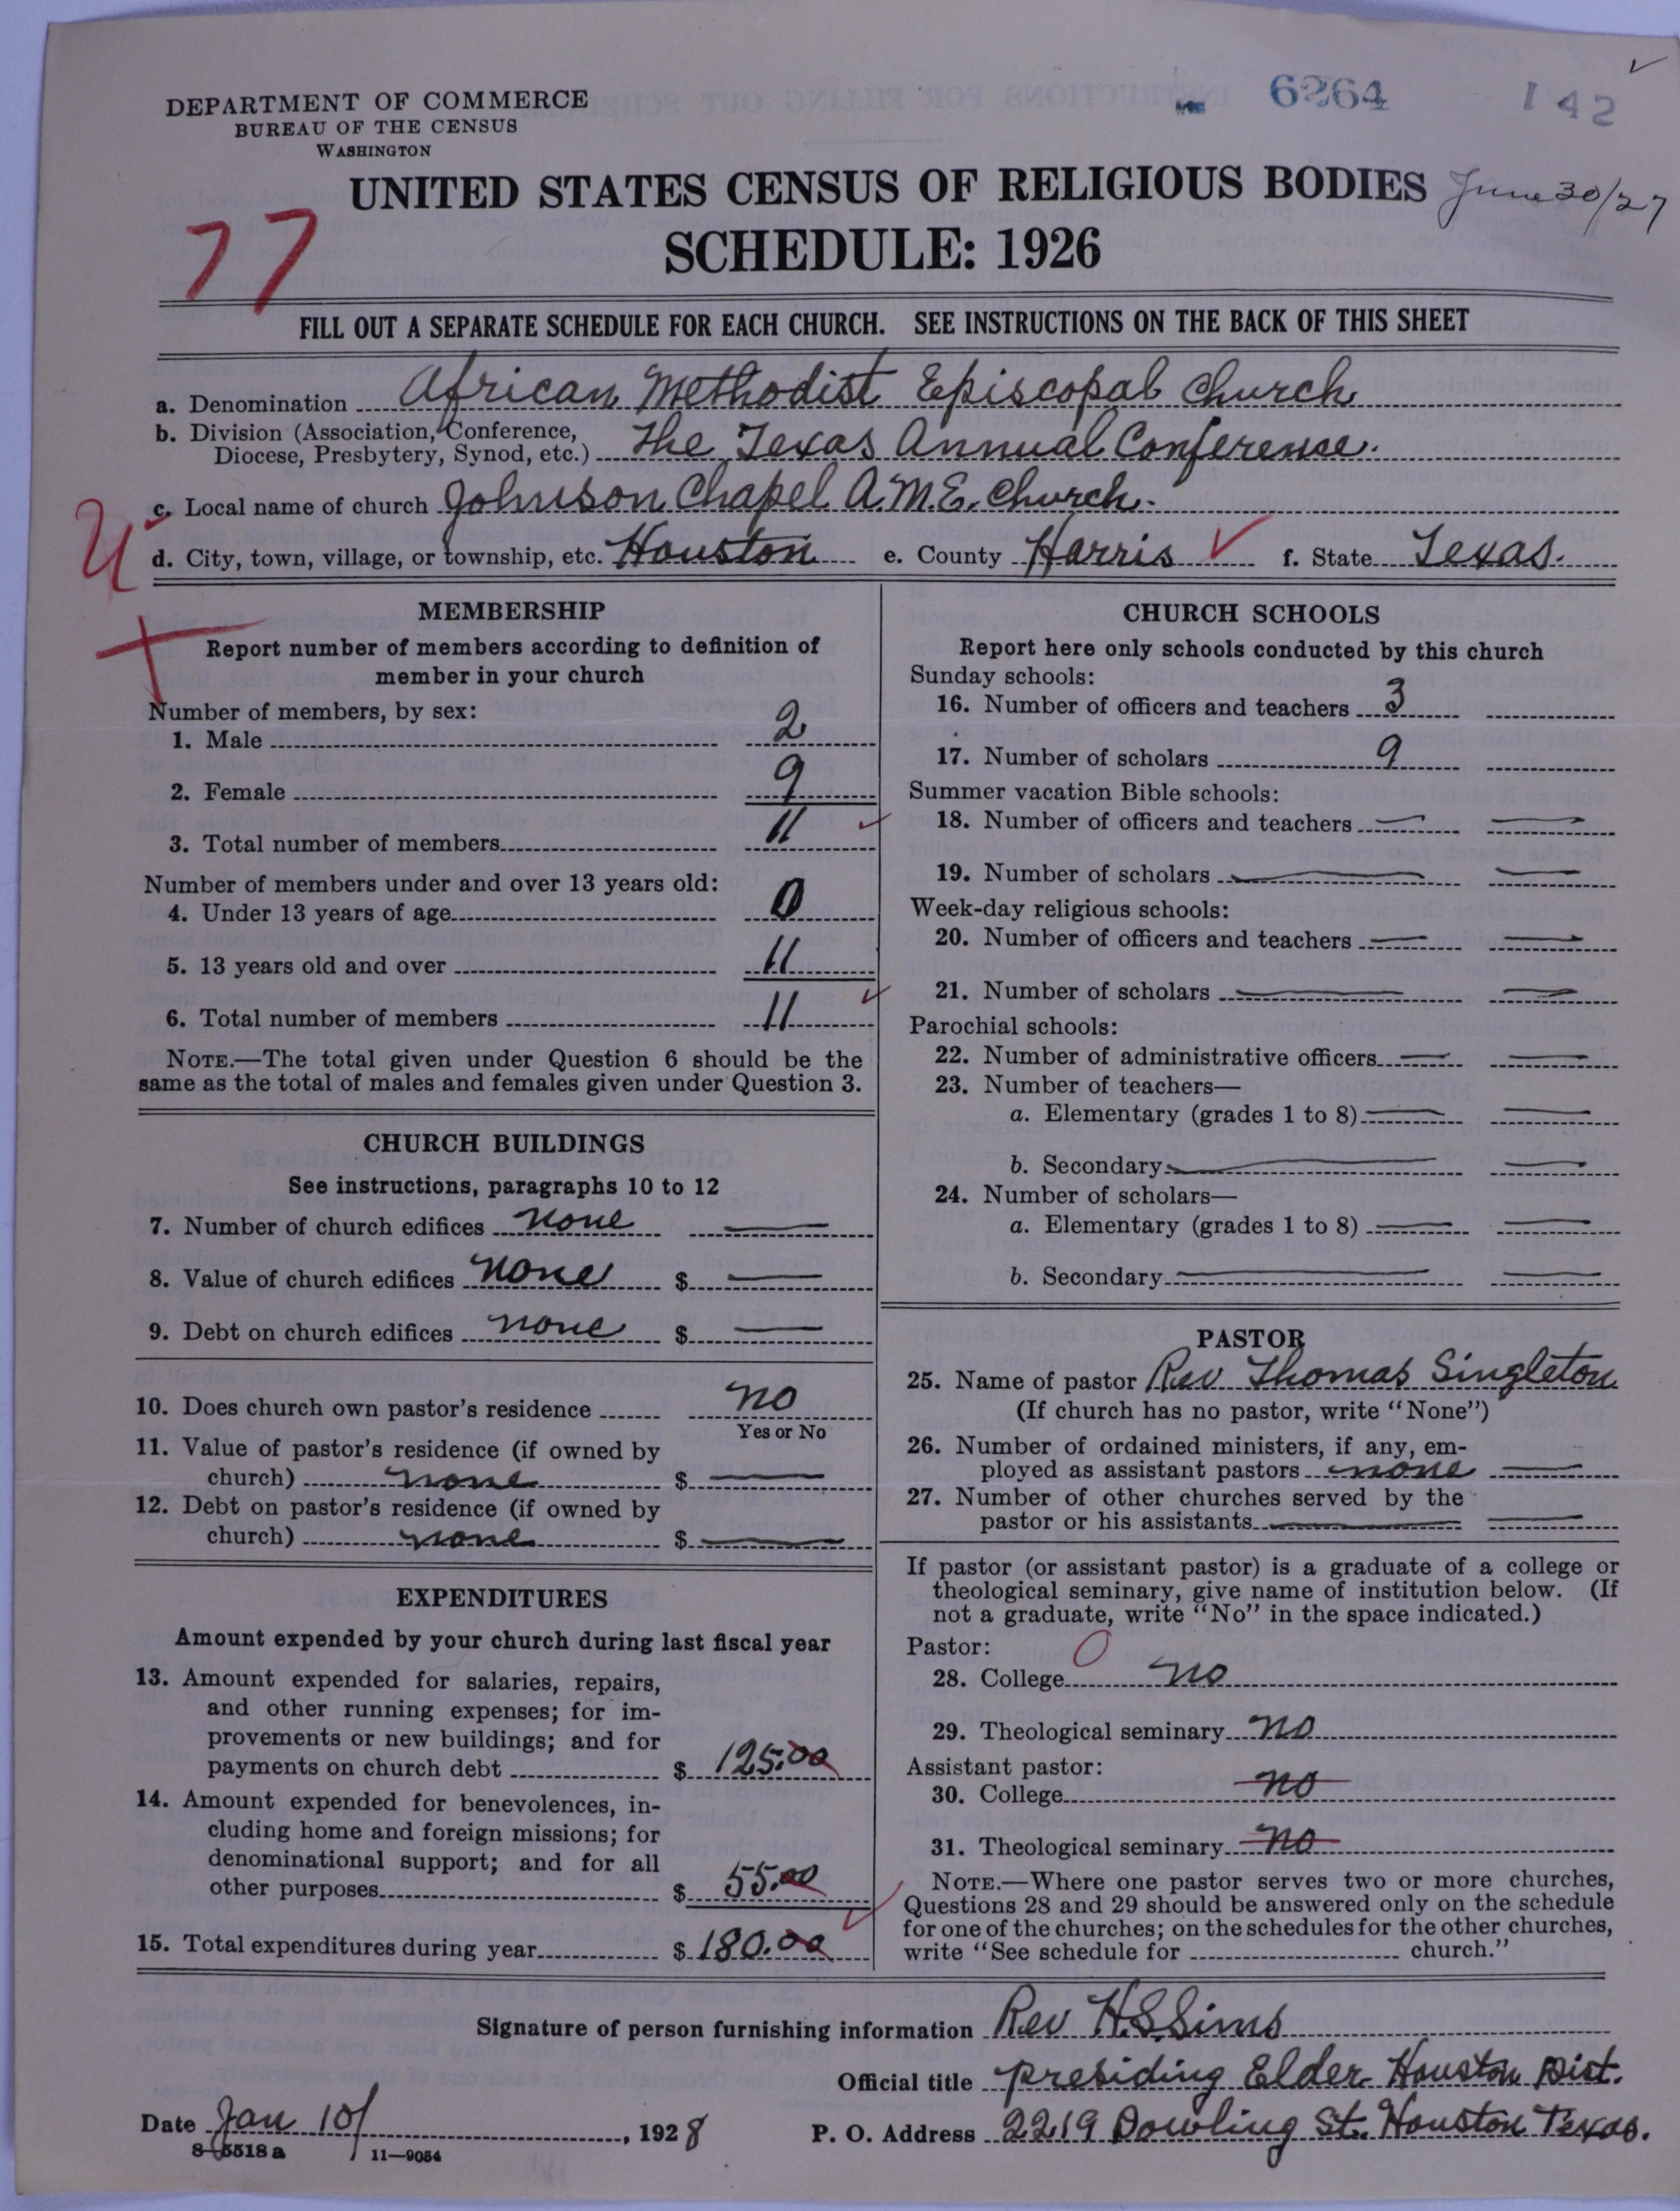 6264 142
DEPARTMENT OF COMMERCE
BUREAU OF THE CENSUS
WASHINGTON
UNITED STATES CENSUS OF RELIGIOUS BODIES June 30/27
77
SCHEDULE: 1926
FILL OUT A SEPARATE SCHEDULE FOR EACH CHURCH. SEE INSTRUCTIONS ON THE BACK OF THIS SHEET
a. Denomination African Methodist Episcopal Church
b. Division (Association, Conference,
Diocese, Presbytery, Synod, etc.) The Texas Annual Conference.
c. Local name of church Johnson Chapel A.M.E. Church.
d. City, town, village, or township, etc. Houston e. County Harris f. State Texas.
MEMBERSHIP
Report number of members according to definition of
member in your church
Number of members, by sex:
1. Male 2
2. Female 9
3. Total number of members 11
Number of members under and over 13 years old:
4. Under 13 years of age 0
5. 13 years old and over 11
6. Total number of members 11
NOTE.—The total given under Question 6 should be the
same as the total of males and females given under Question 3.
CHURCH BUILDINGS
See instructions, paragraphs 10 to 12
7. Number of church edifices none
8. Value of church edifices none $
9. Debt on church edifices none $
10. Does church own pastor's residence no
Yes or No
11. Value of pastor's residence (if owned by
church) none $
12. Debt on pastor's residence (if owned by
church) none $
EXPENDITURES
Amount expended by your church during last fiscal year
13. Amount expended for salaries, repairs,
and other running expenses; for im-
provements or new buildings; and for
payments on church debt $ 125.00
14. Amount expended for benevolences, in-
cluding home and foreign missions; for
denominational support; and for all
other purposes $ 55.00
15. Total expenditures during year $ 180.00
CHURCH SCHOOLS
Report here only schools conducted by this church
Sunday schools:
16. Number of officers and teachers 3
17. Number of scholars 9
Summer vacation Bible schools:
18. Number of officers and teachers
19. Number of scholars
Week-day religious schools:
20. Number of officers and teachers
21. Number of scholars
Parochial schools:
22. Number of administrative officers
23. Number of teachers—
a. Elementary (grades 1 to 8)
b. Secondary
24. Number of scholars—
a. Elementary (grades 1 to 8)
b. Secondary
PASTOR
25. Name of pastor Rev Thomas Singleton
(If church has no pastor, write "None")
26. Number of ordained ministers, if any, em-
ployed as assistant pastors none
27. Number of other churches served by the
pastor or his assistants
If pastor (or assistant pastor) is a graduate of a college or
theological seminary, give name of institution below. (If
not a graduate, write "No" in the space indicated.)
Pastor: 0
28. College no
29. Theological seminary no
Assistant pastor:
30. College no
31. Theological seminary no
NOTE.—Where one pastor serves two or more churches,
Questions 28 and 29 should be answered only on the schedule
for one of the churches; on the schedules for the other churches,
write "See schedule for church."
Signature of person furnishing information Rev H.S. Sims
Official title presiding Elder Houston Dist.
Date Jan 10/, 1928 P. O. Address 2219 Dowling St. Houston Texas.
8-5518a 11—9054